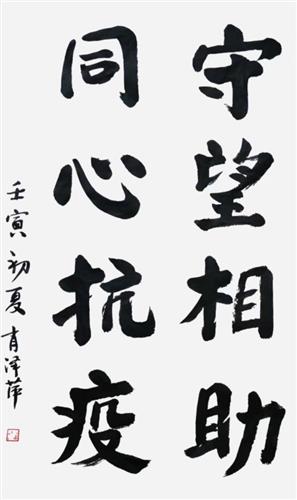 守望相助
同心抗疫
壬寅初夏肖泽萍